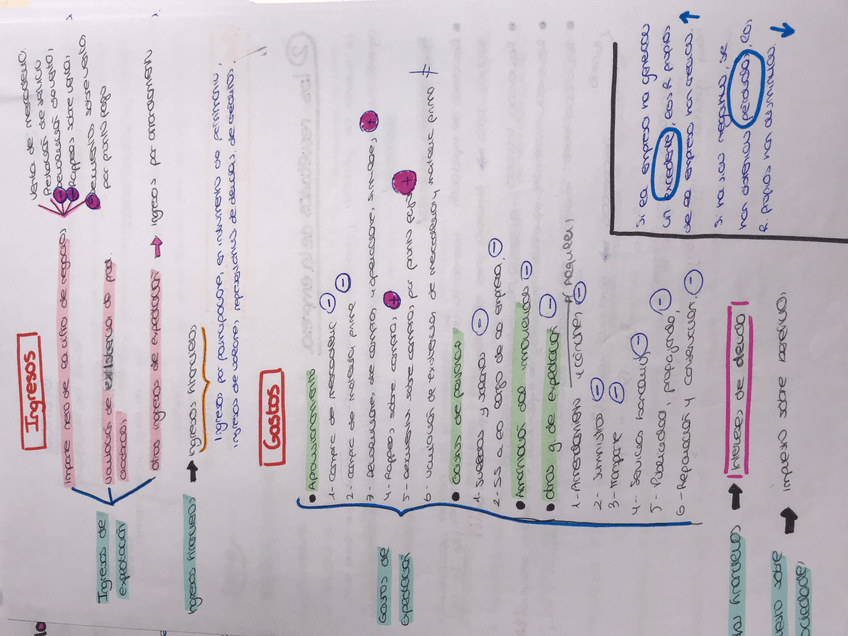 Ingresos
Ingresos de
explotación
importe neto de la cifra de negocios
Venta de mercaderías
Prestación de servicios
- Devolución de ventas
- Rappels sobre ventas
- Descuentos sobre ventas
por pronto pago
variación de existencias de prod.
acabados
otros ingresos de explotación → Ingresos por arrendamiento
Ingresos financieros → Ingresos financieros
Ingresos por participaciones, en instrumentos de patrimonio,
ingresos de valores, representativos de deudas, de créditos
Gastos
Gastos de
explotación
• Aprovisionamiento
1- Compra de mercaderías -
2- Compra de materias primas -
3- Devoluciones de compras y operaciones similares +
4- Rappels sobre compras +
5- Descuentos sobre compras por pronto pago +
6- Variación de existencias de mercaderías y materias primas ≠
• Gastos de personal
1- Sueldos y salarios -
2- SS a cargo de la empresa -
• Amortización del inmovilizado -
• otros g. de explotación -
1- Arrendamientos y cánones -
2- Suministros -
3- Transporte -
4- Servicios bancarios -
5- Publicidad, propaganda -
6- Reparación y conservación -
financieros → intereses de deudas
sobre
sociedades → impuesto sobre beneficios
Si la empresa ha generado
un excedente, los R. propios
de la empresa han crecido. ↑
Si ha sido negativo, se
han obtenido pérdidas, los
R. propios han disminuido. ↓